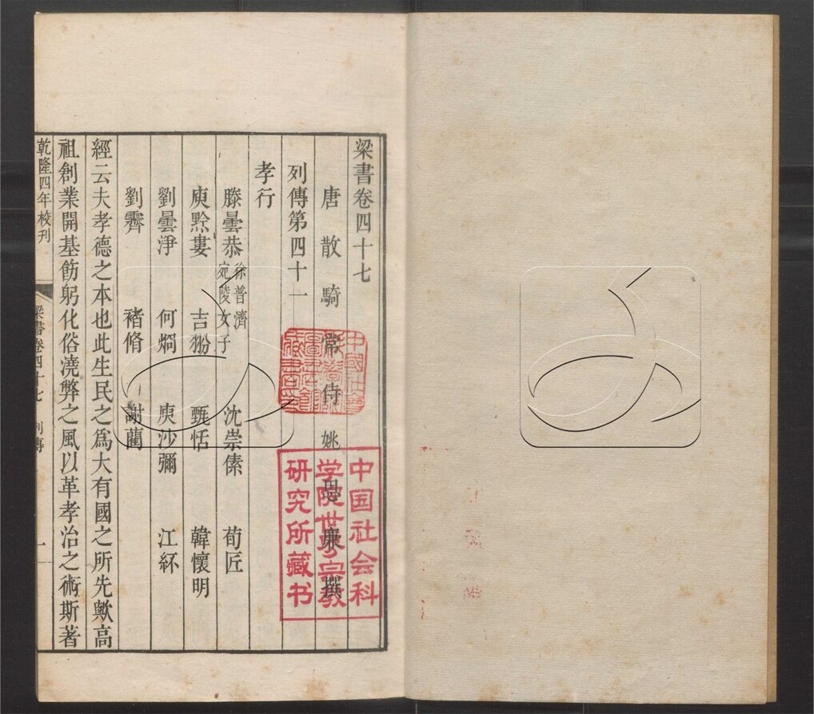 梁書卷四十七
唐散騎常侍姚思廉撰
列傳第四十一
孝行
滕曇恭 徐普濟 宛陵女子 沈崇傃 荀匠
庾黔婁 吉翂 甄恬 韓懷明
劉曇淨 何烱 庾沙彌 江紑
劉霽 褚脩 謝藺
經云夫孝德之本也此生民之爲大有國之所先歟高
祖創業開基飭躬化俗澆弊之風以革孝治之術斯著
乾隆四年校刊
梁書卷四十七 列傳
一
中国社会科
学院世界宗教
研究所藏书